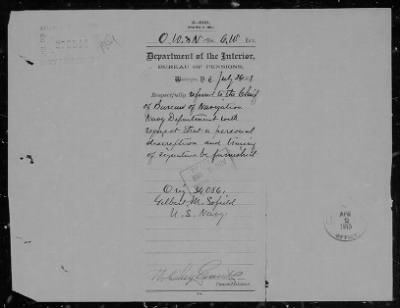 O.W. & N. Div.
Department of the Interior,
BUREAU OF PENSIONS,
Washington, D. C., July 26
Respectfully referred to the Chief
of Bureau of Navigation
Navy Department with
request that a personal
description and tracing
of signature be furnished
Orig 34086
Gilbert M. Sofield
U.S. Navy
Commissioner.
APR
OFFICE